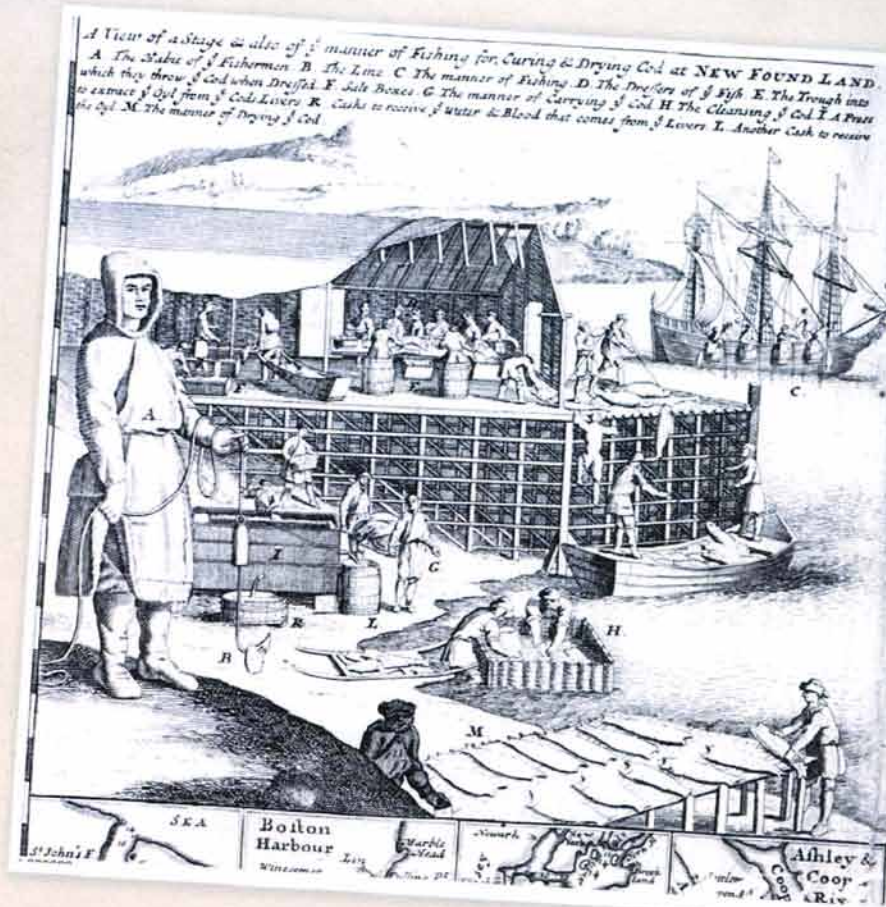 A View of a Stage & also of ẙ manner of Fishing for, Curing & Drying Cod at NEW FOUND LAND.
A. The Habit of ẙ Fishermen. B. The Line. C. The manner of Fishing. D. The Dressers of ẙ Fish. E. The Trough into
which they throw ẙ Cod when Dressed. F. Salt Boxes. G. The manner of Carrying ẙ Cod. H. The Cleansing ẙ Cod. I. A Press
to extract ẙ Oyl from ẙ Cods Livers. K. Casks to receive ẙ water & Blood that comes from ẙ Livers. L. Another Cask to receive
the Oyl. M. The manner of Drying ẙ Cod.
C
A
I
G
K
L
H
B
M
SKA
St John's F.
Boston
Harbour
Marble
Head
Winesemet
Lin
Newark
Ashley &
Coop
Riv